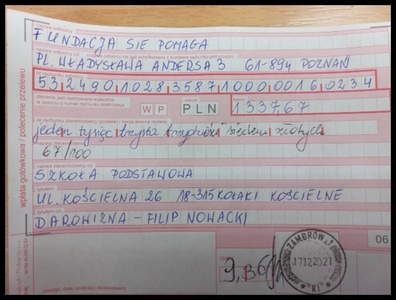 FUNDACJA SIE POMAGA
PL. WŁADYSŁAWA ANDERSA 3 61-894 POZNAŃ
53249010283587100000160234
WP PLN 1337,67
jeden tysiąc trzysta trzydzieści siedem złotych
67/100
SZKOŁA PODSTAWOWA
UL. KOŚCIELNA 26 18-315 KOŁAKI KOŚCIELNE
DAROWIZNA - FILIP NOWACKI
wpłata gotówkowa / polecenie przelewu
06
ZAMBRÓW 1
17122021